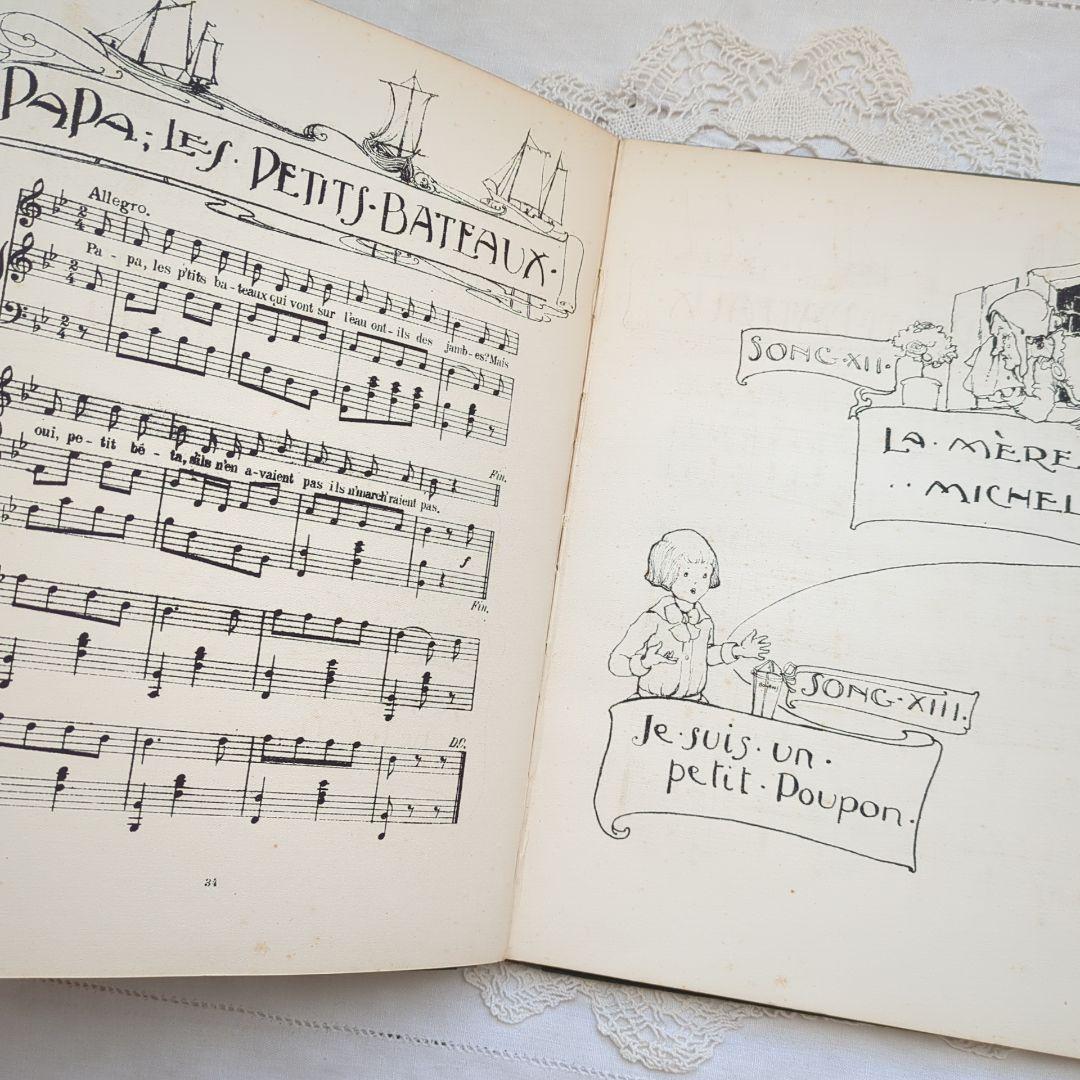 PAPA; LES · PETITS · BATEAUX ·
Allegro.
Pa - pa, les p'tits ba - teaux qui vont sur l'eau ont - ils des jamb - es? Mais
oui, pe - tit bê - ta, s'ils n'en a - vaient pas ils n'march'raient pas.
Fin.
f
Fin.
D.C.
34
SONG · XII.
LA · MÈRE
·· MICHEL
SONG · XIII.
Je · suis · un ·
petit · Poupon.